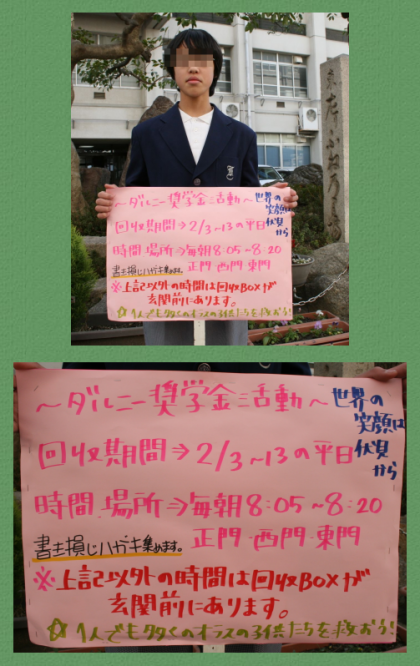 ～ダルニー奨学金活動～
世界の
笑顔は
伏見
から
回収期間⇒2/3~13の平日
時間・場所⇒毎朝8:05~8:20
書き損じハガキ集めます。
正門・西門・東門
※上記以外の時間は回収BOXが
玄関前にあります。
☆1人でも多くのオラスの子供たちを救おう!
～ダルニー奨学金活動～
世界の
笑顔は
伏見
から
回収期間⇒2/3~13の平日
時間・場所⇒毎朝8:05~8:20
書き損じハガキ集めます。
正門・西門・東門
※上記以外の時間は回収BOXが
玄関前にあります。
☆1人でも多くのオラスの子供たちを救おう!